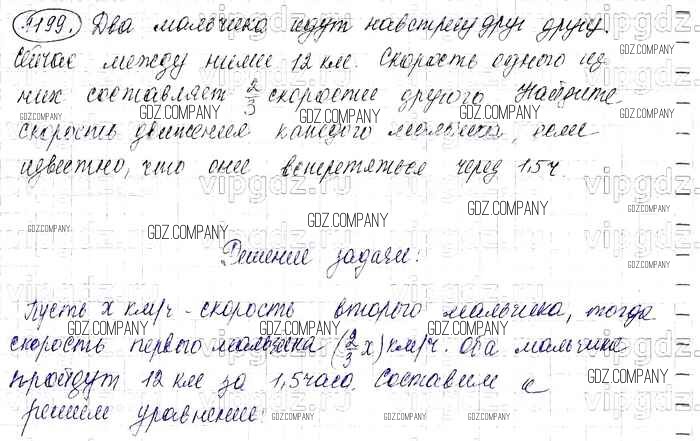 №199. Два мальчика идут навстречу друг другу.
Сейчас между ними 12 км. Скорость одного из
них составляет 2/3 скорости другого. Найдите
скорость движения каждого мальчика, если
известно, что они встретяться через 1,5 ч.
Решение задачи:
Пусть x км/ч - скорость второго мальчика, тогда
скорость первого мальчика (2/3 x) км/ч. Оба мальчика
пройдут 12 км за 1,5 часа. Составим и
решим уравнение:
GDZ.COMPANY
vipgdz.ru